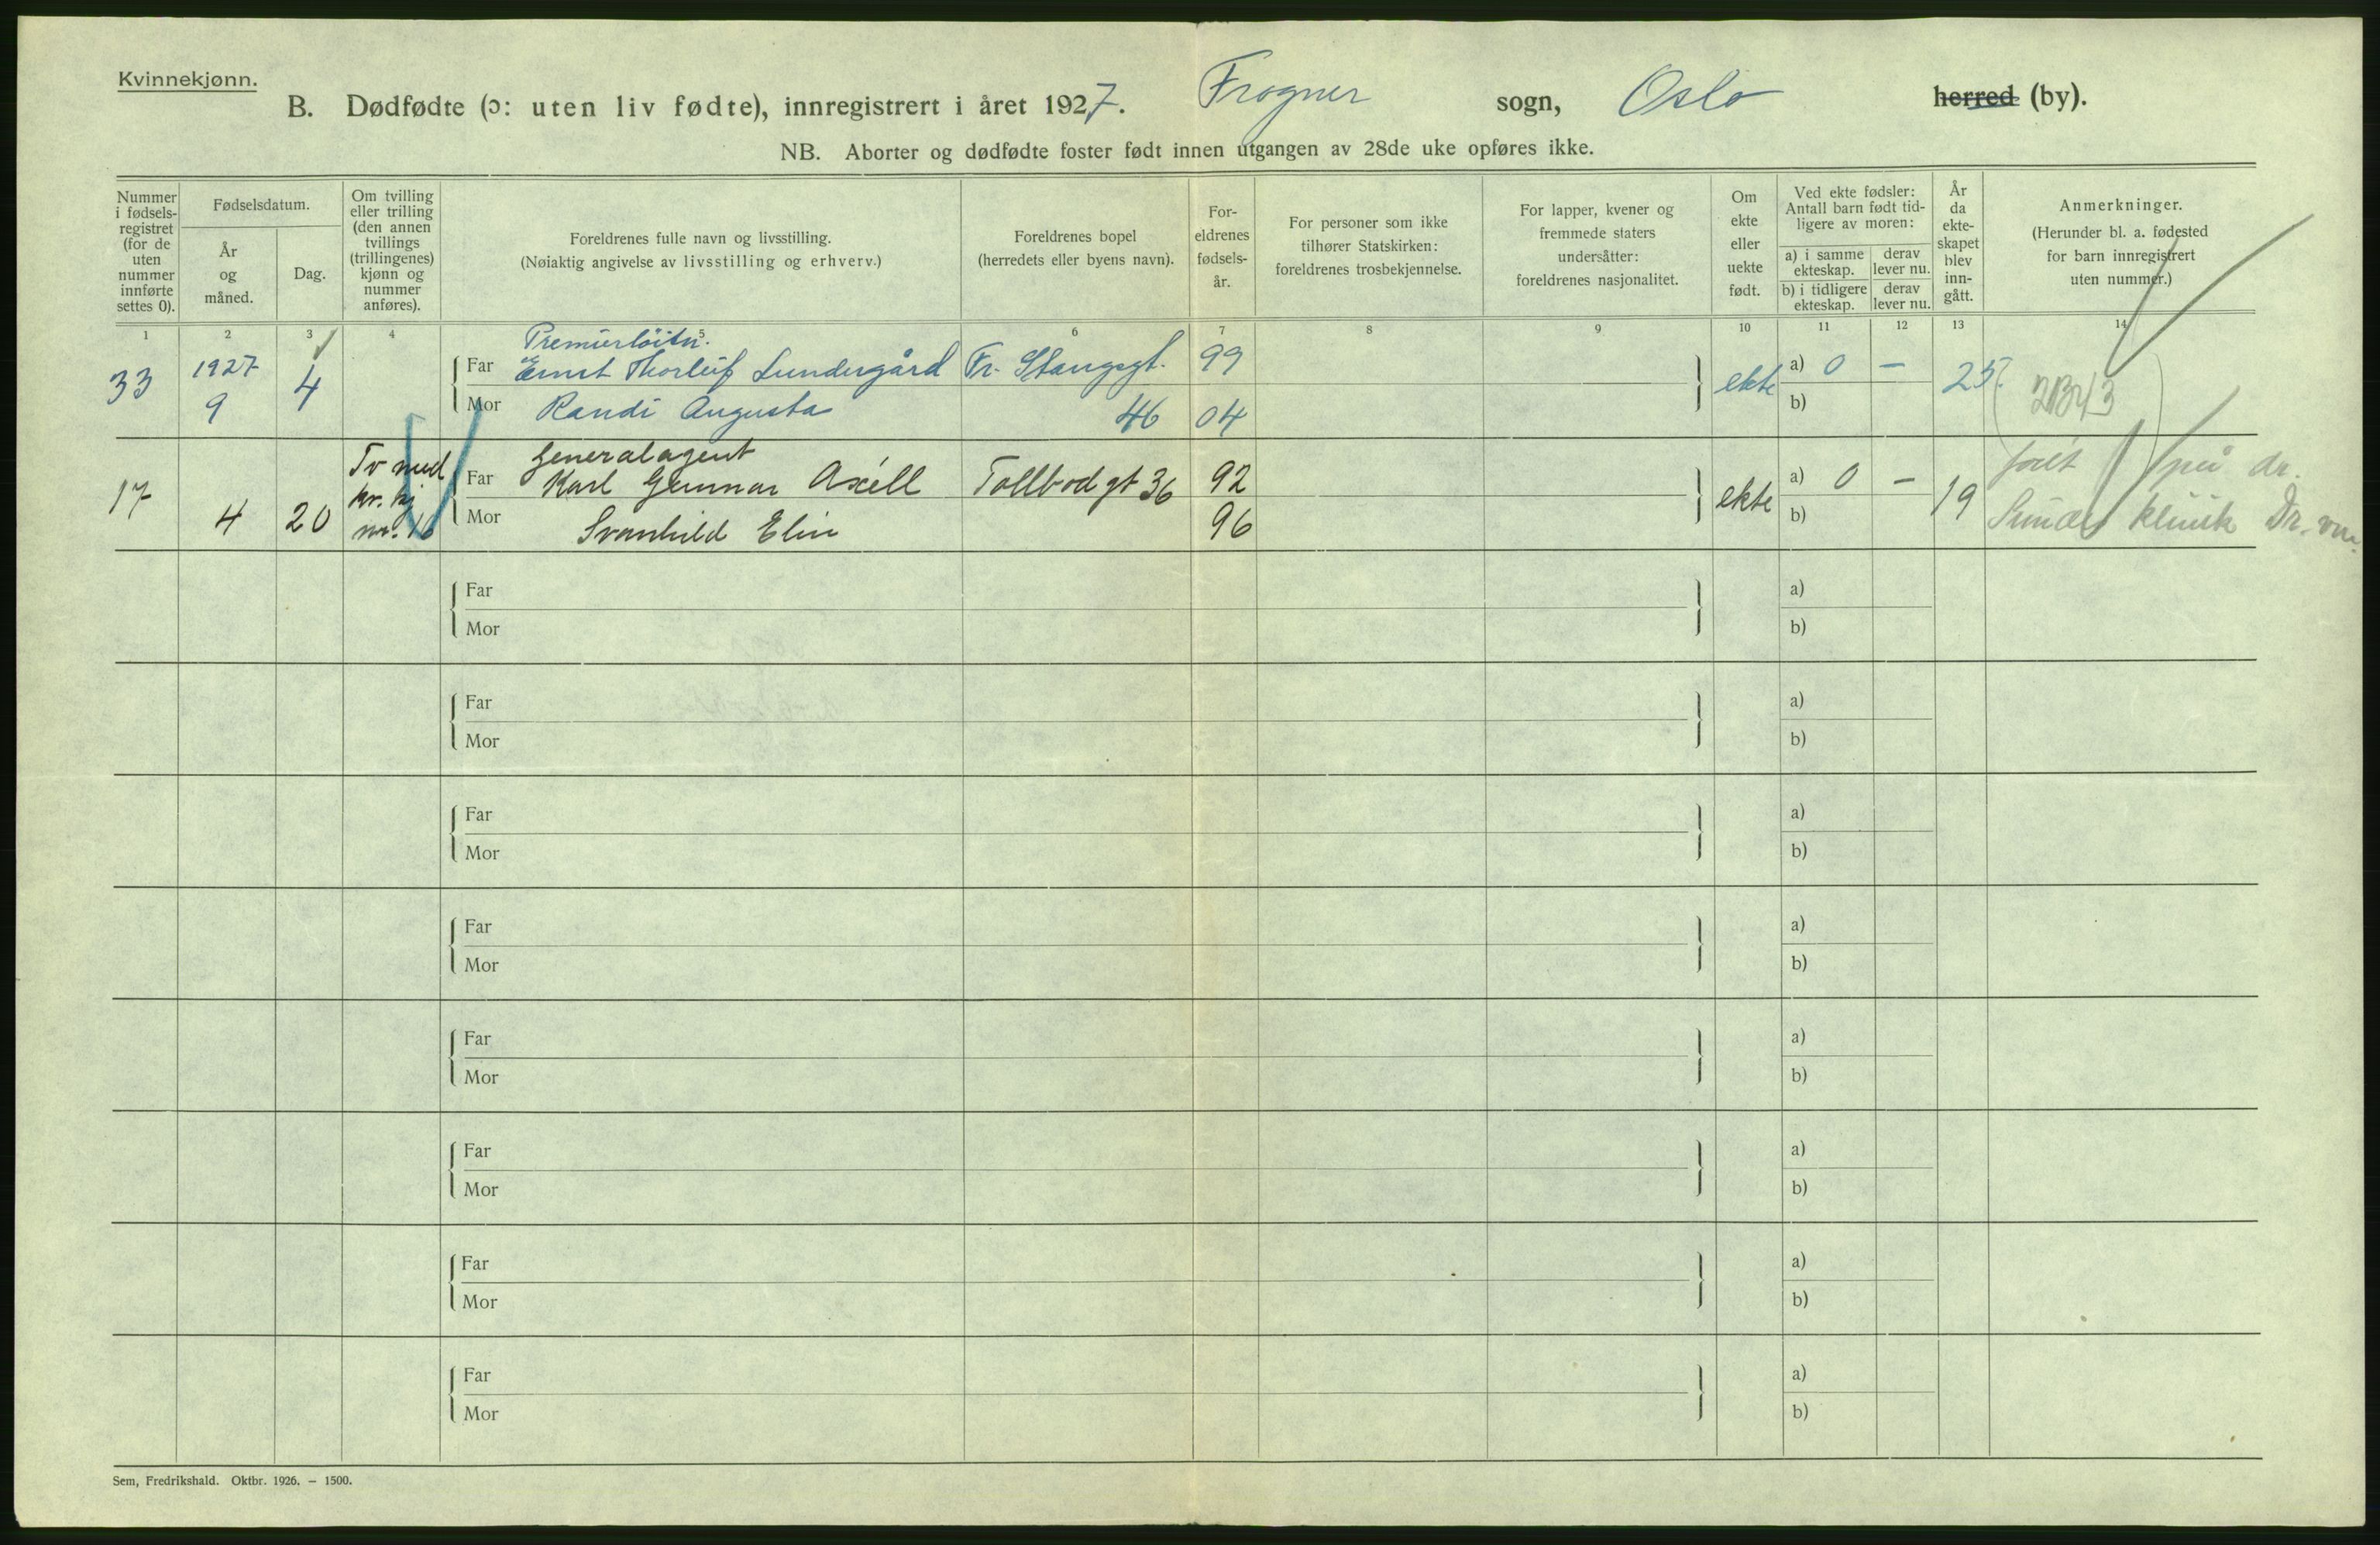 Kvinnekjønn.
B. Dødfødte (ɔ: uten liv fødte), innregistrert i året 1927. Frogner sogn, Oslo herred (by).
NB. Aborter og dødfødte foster født innen utgangen av 28de uke opføres ikke.
Nummer i fødsels-registret (for de uten nummer innførte settes 0).
Fødselsdatum.
År og måned.
Dag.
Om tvilling eller trilling (den annen tvillings (trillingenes) kjønn og nummer anføres).
Foreldrenes fulle navn og livsstilling.
(Nøiaktig angivelse av livsstilling og erhverv.)
Foreldrenes bopel
(herredets eller byens navn).
For-eldrenes fødsels-år.
For personer som ikke tilhører Statskirken: foreldrenes trosbekjennelse.
For lapper, kvener og fremmede staters undersåtter: foreldrenes nasjonalitet.
Om ekte eller uekte født.
Ved ekte fødsler: Antall barn født tid-ligere av moren:
a) i samme ekteskap.
derav lever nu.
b) i tidligere ekteskap.
derav lever nu.
År da ekte-skapet blev inn-gått.
Anmerkninger.
(Herunder bl. a. fødested for barn innregistrert uten nummer.)
1 2 3 4 5 6 7 8 9 10 11 12 13 14
Premierløitn.
33 1927 4 Far Ernst Thorleif Lundergård Fr. Stangsgt. 99 ekte a) 0 – 25
9 Mor Randi Augusta 46 04 b)
Tv med Generalagent født på dr.
17 kv. kj Far Karl Gunnar Axéll Tollbodgt 36 92 ekte a) 0 – 19
4 20 nr. 16 Mor Svanhild Elin 96 b) klinik Dr.
Far a)
Mor b)
Far a)
Mor b)
Far a)
Mor b)
Far a)
Mor b)
Far a)
Mor b)
Far a)
Mor b)
Far a)
Mor b)
Far a)
Mor b)
Sem, Fredrikshald. Oktbr. 1926. – 1500.